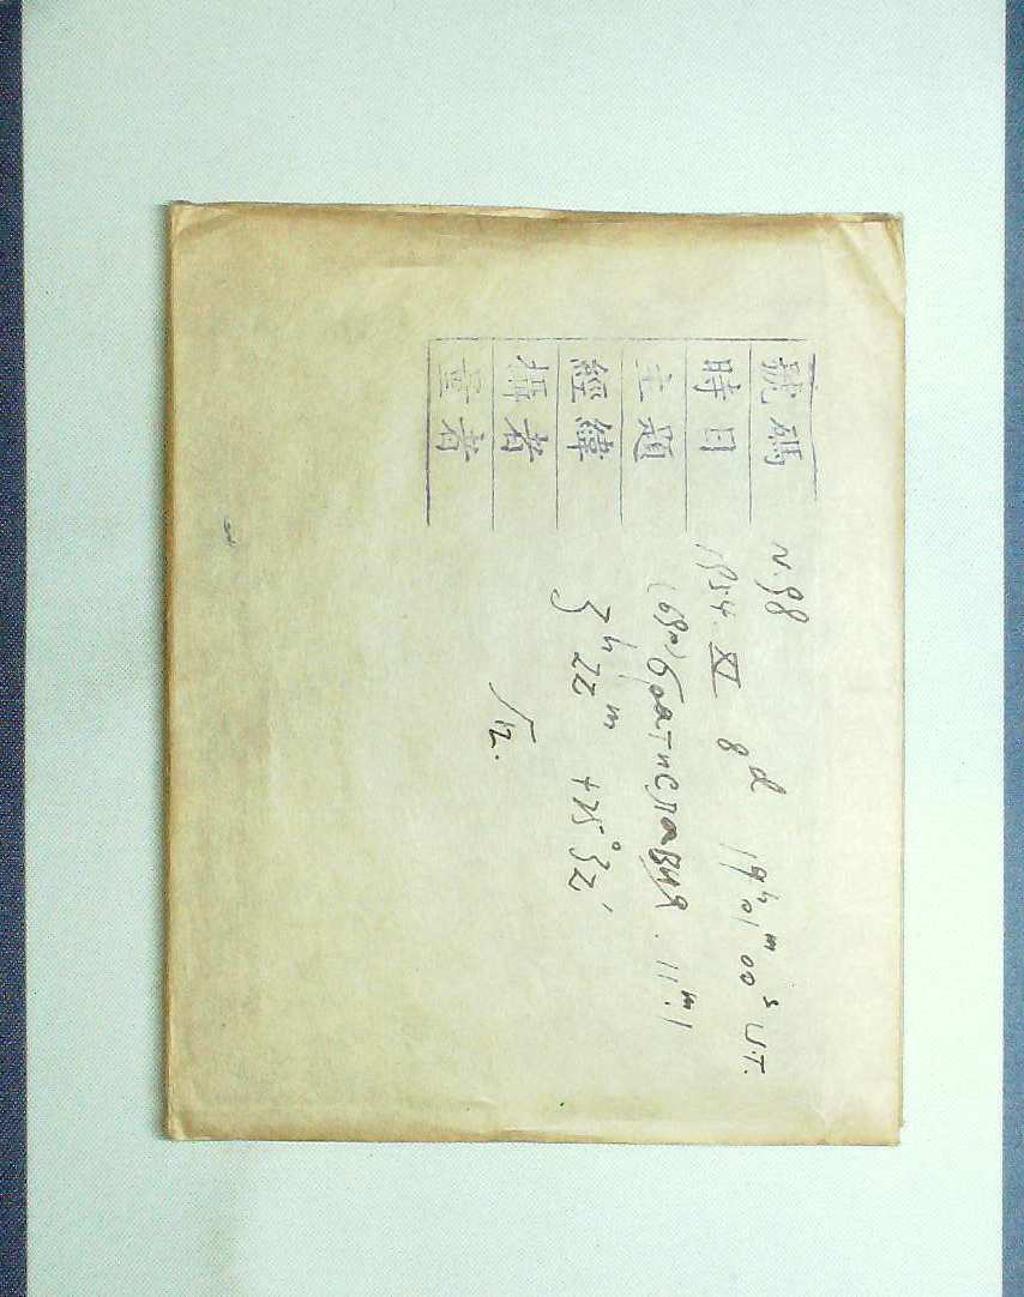 號碼 N.98
時日 1954. XI 8d 19h 01m 00s U.T.
主題 братиславия. 11m.1
經緯 3h 22m +25°32′
攝者
量者